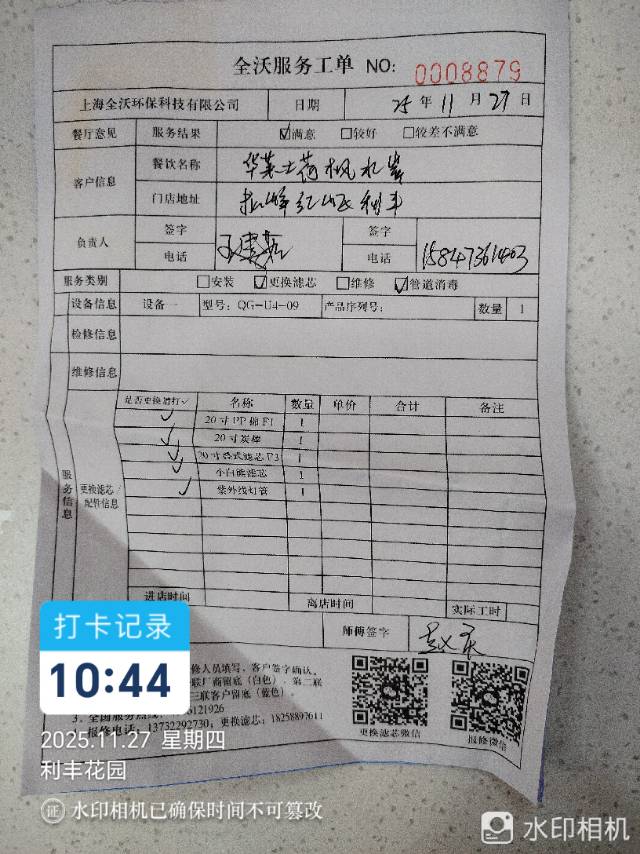 全沃服务工单 NO: 0008879
上海全沃环保科技有限公司 日期 25 年 11 月 27 日
餐厅意见 服务结果 ☑满意 □较好 □较差不满意
客户信息 餐饮名称 华莱士
门店地址 松峰 利丰
负责人 签字 签字
电话 电话 15847361403
服务类别 □安装 ☑更换滤芯 □维修 ☑管道消毒
设备信息 设备一 型号: QG-U4-09 产品序列号: 数量 1
检修信息
维修信息
服务信息 更换滤芯/配件信息
是否更换请打✓ 名称 数量 单价 合计 备注
✓ 20寸PP棉F1 1
✓ 20寸炭棒 1
✓ 20寸叠式滤芯F3 1
✓ 小白熊滤芯 1
✓ 紫外线灯管 1
进店时间 离店时间 实际工时
师傅签字
修人员填写, 客户签字确认。
联厂商留底(白色), 第二联
三联客户留底(蓝色)。
3. 全国服务热线: 6121926
报修电话: 13732292730, 更换滤芯: 18258897611
更换滤芯微信 报修微信
打卡记录
10:44
2025.11.27 星期四
利丰花园
证 水印相机已确保时间不可篡改
水印相机